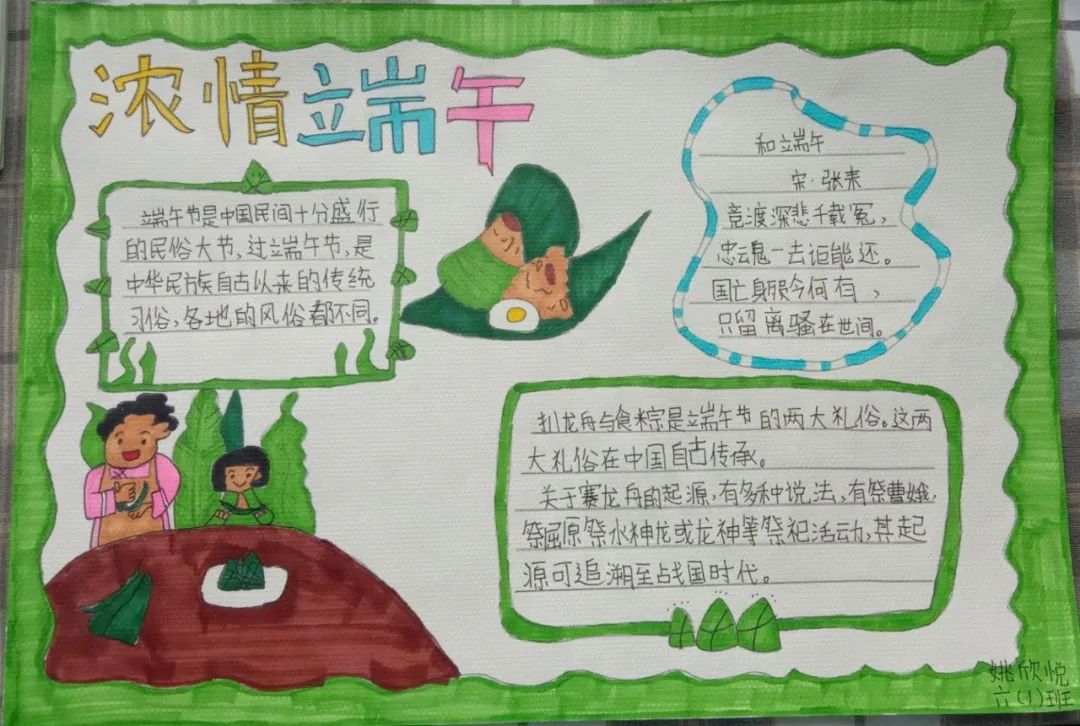 浓情端午
端午节是中国民间十分盛行
的民俗大节,过端午节,是
中华民族自古以来的传统
习俗,各地的风俗都不同。
和端午
宋·张耒
竞渡深悲千载冤,
忠魂一去讵能还。
国亡身殒今何有,
只留离骚在世间。
扒龙舟与食粽是端午节的两大礼俗。这两
大礼俗在中国自古传承。
关于赛龙舟的起源,有多种说法,有祭曹娥,
祭屈原祭水神龙或龙神等祭祀活动,其起
源可追溯至战国时代。
姚欣悦
六(1)班